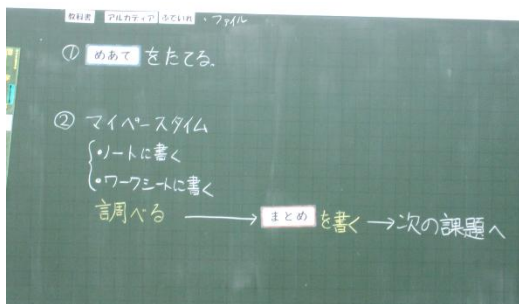 教科書 アルカディア ふでいれ ・ファイル
① めあて をたてる.
② マイペースタイム
・ノートに書く
・ワークシートに書く
調べる → まとめ を書く → 次の課題へ